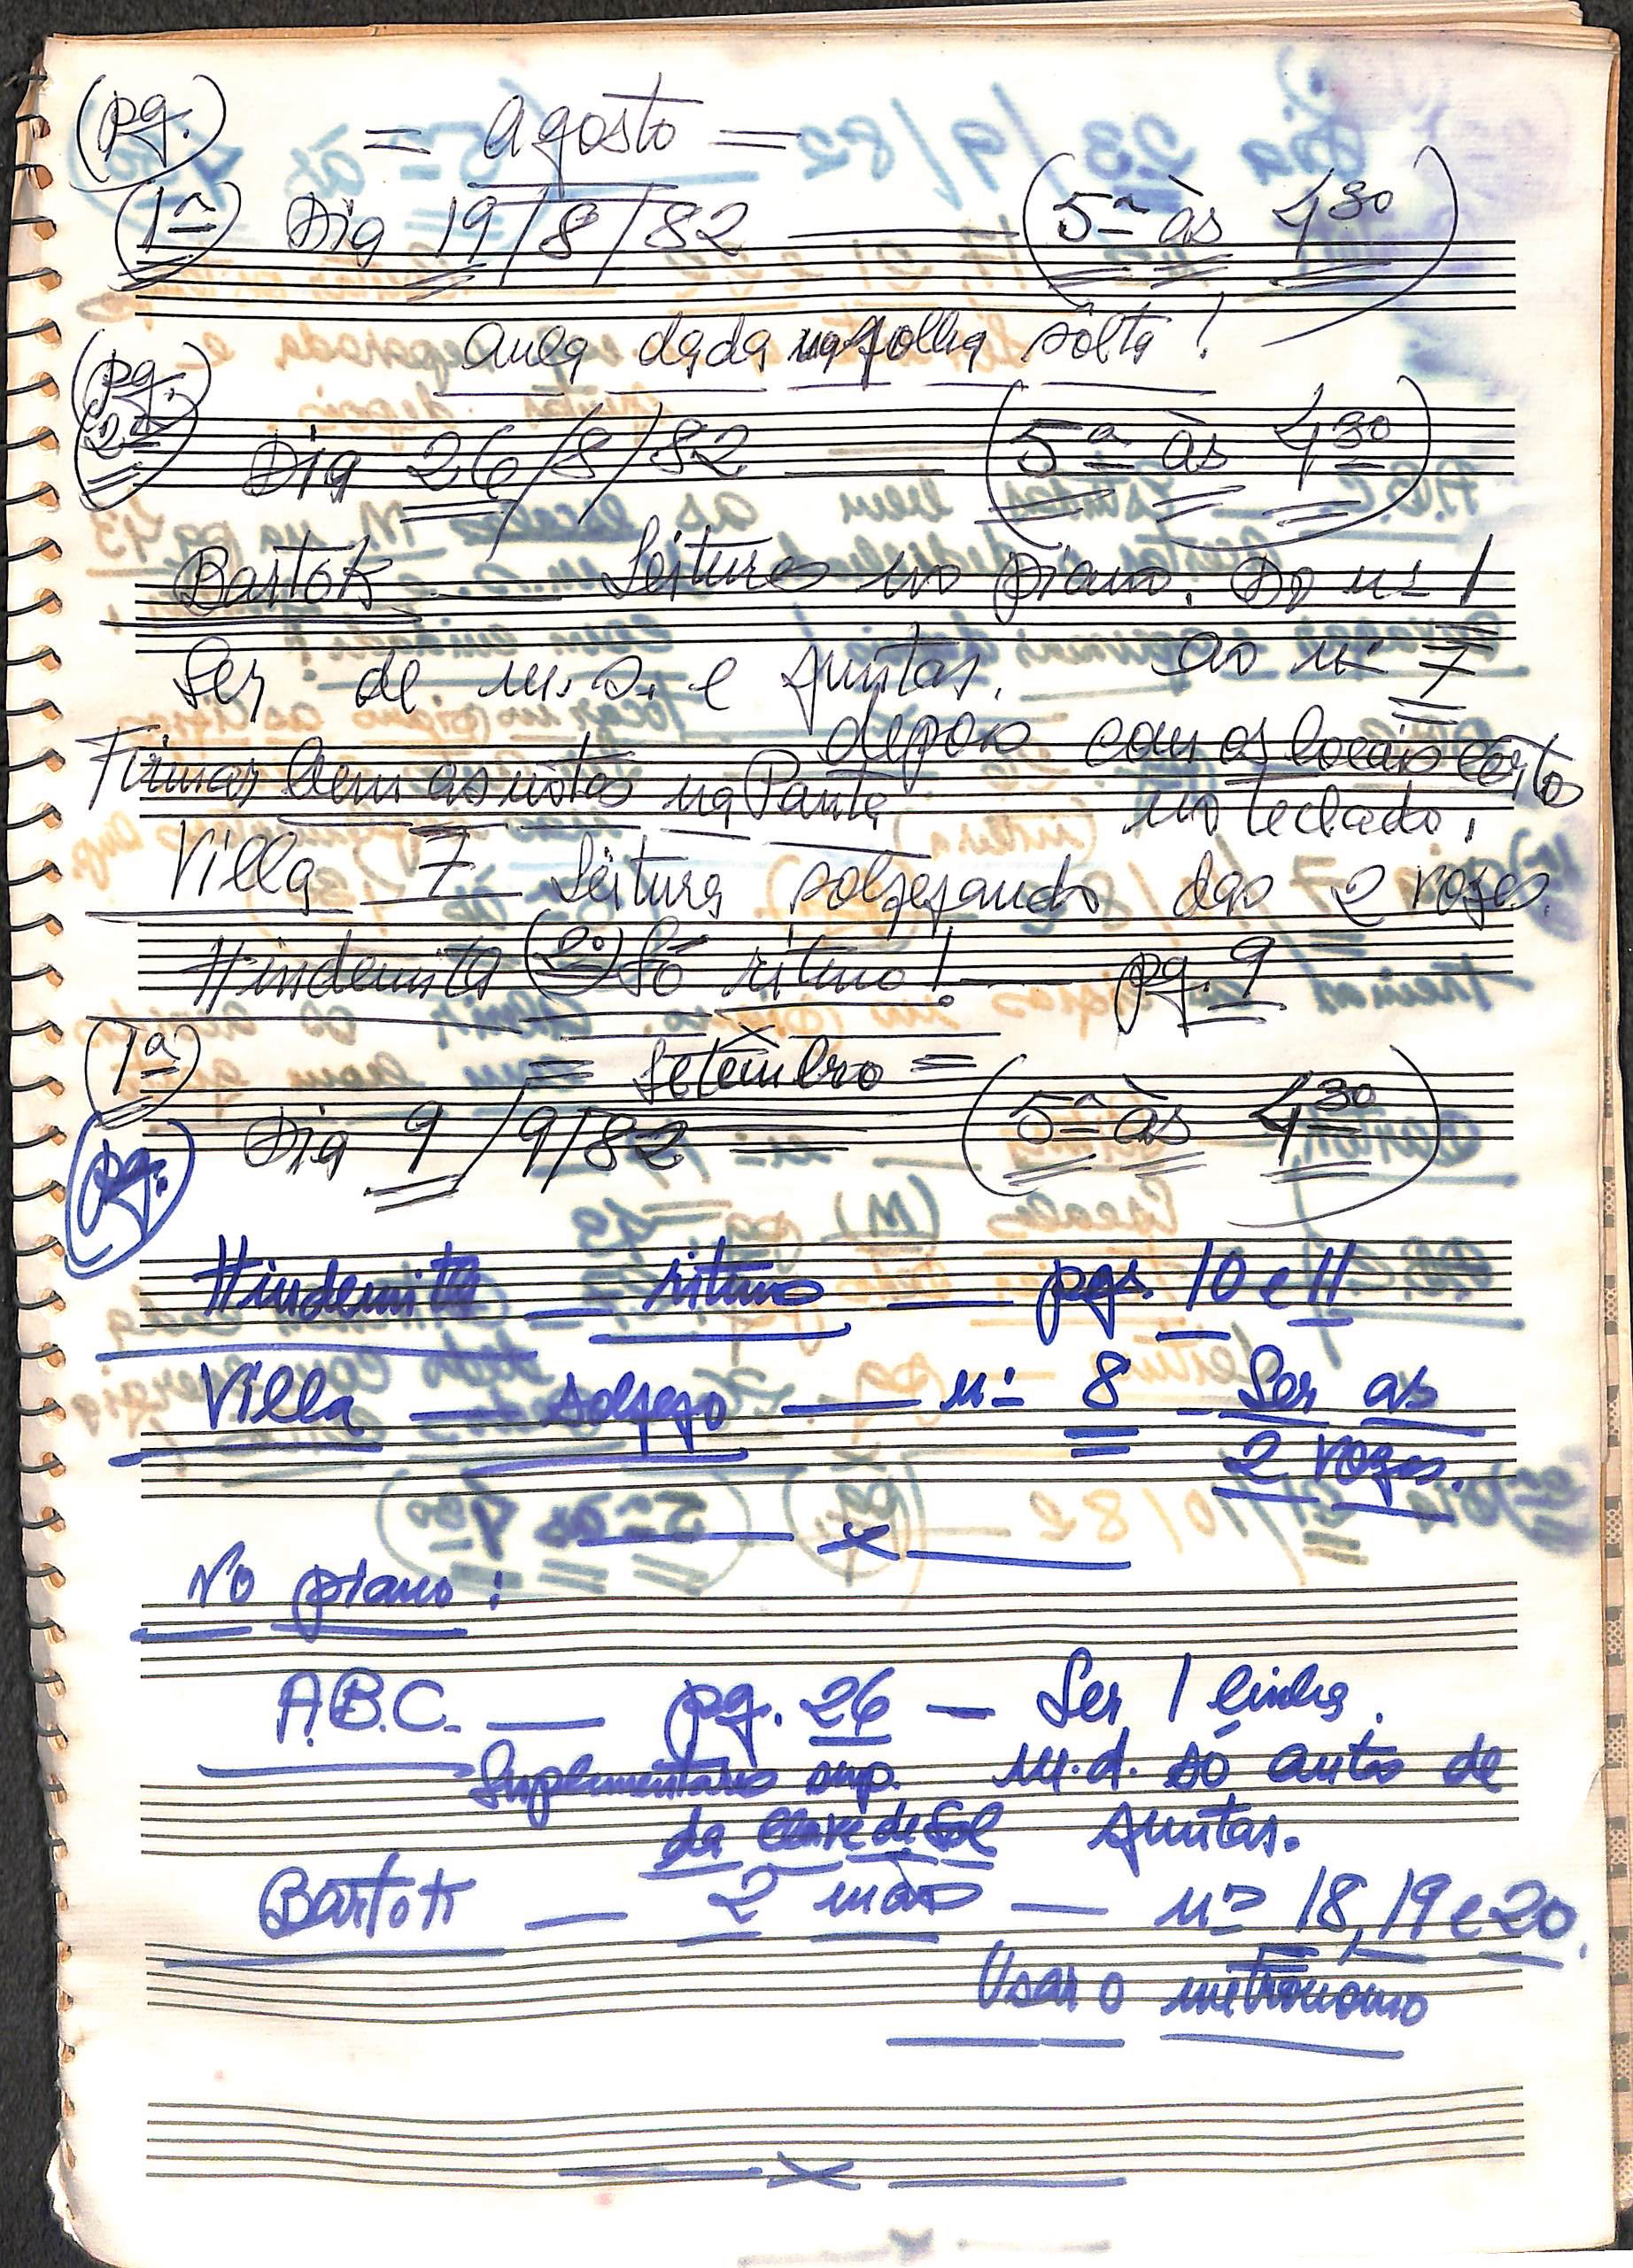 (pg.) = Agosto =
(1ª) Dia 19/8/82 — (5ª às 4³⁰)
Aula dada na folha sôlta!
(pg.)
(2ª) Dia 26/8/82 — (5ª às 4³⁰)
Bartok — Leituras no piano. Do nº 1
Ler de m.s. e juntas. ao nº 7
depois com os locais certos
Firmar bem as notas na Pauta
no teclado.
Villa 7 Leitura solfejando das 2 vozes.
Hindemith (2º) Só ritmo! — pg. 9
x
(1ª) = Setembro =
Dia 9/9/82 — (5ª às 4³⁰)
(pg.)
Hindemith — ritmo — pgs. 10 e 11
Villa — solfejo — nº 8 — Ler as
2 vozes.
— x —
No piano:
A.B.C. — pg. 26 — Ler 1 linha.
Suplementares sup. m.d. só antes de
da Clave de Sol juntas.
Bartok — 2 mãos — nº 18, 19 e 20.
Usar o metrônomo
— x —